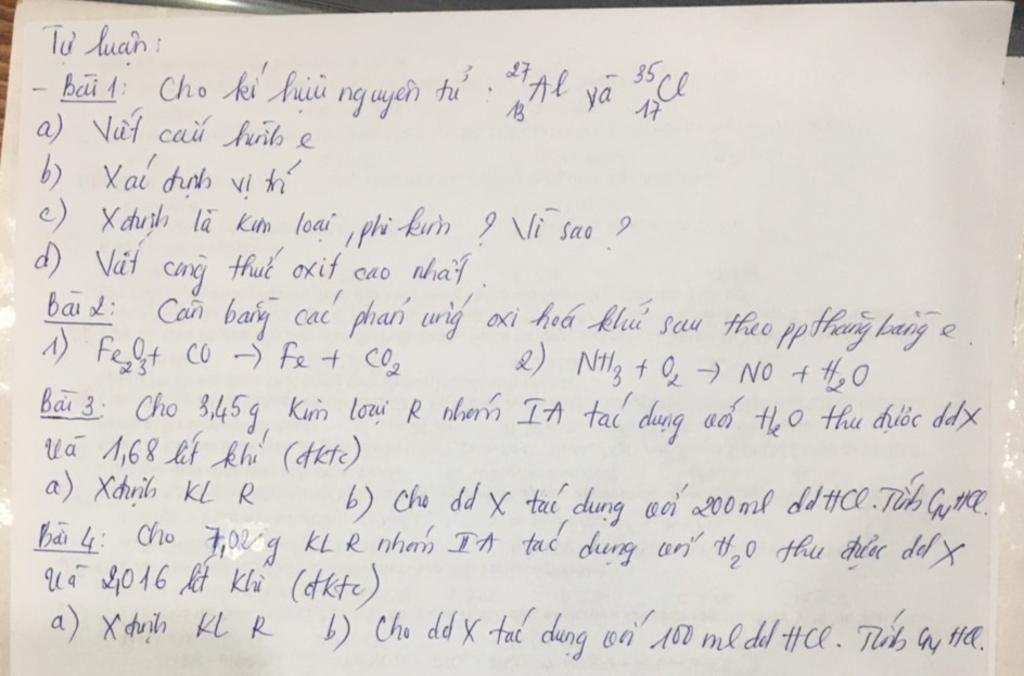 Tự luận:
- Bài 1: Cho kí hiệu nguyên tử: ²⁷₁₃Al và ³⁵₁₇Cl
a) Viết cấu hình e
b) Xác định vị trí
c) Xđịnh là kim loại, phi kim? Vì sao?
d) Viết công thức oxit cao nhất.
Bài 2: Cân bằng các phản ứng oxi hoá khử sau theo pp thăng bằng e.
1) Fe₂O₃ + CO → Fe + CO₂ 2) NH₃ + O₂ → NO + H₂O
Bài 3: Cho 3,45g kim loại R nhóm IA tác dụng với H₂O thu được ddX
và 1,68 lít khí (đktc)
a) Xđịnh KL R b) Cho dd X tác dụng với 200ml dd HCl. Tính C_M HCl.
Bài 4: Cho 7,02g KL R nhóm IA tác dụng với H₂O thu được dd X
và 2,016 lít khí (đktc)
a) Xđịnh KL R b) Cho dd X tác dụng với 100 ml dd HCl. Tính C_M HCl.